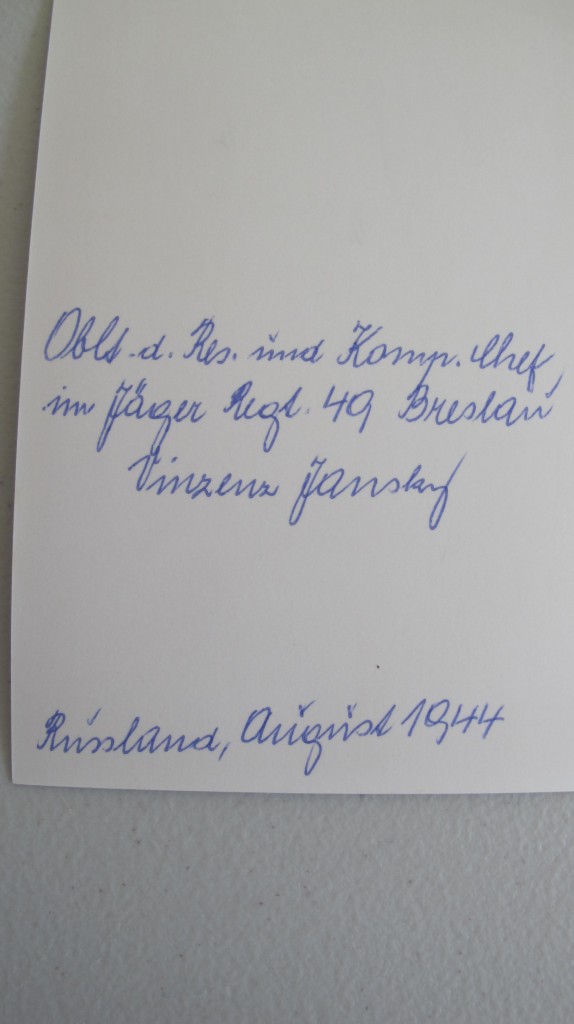 Oblt. d. Res. und Komp. Chef,
im Jäger Regt. 49 Breslau
Vinzenz Jansky
Russland, August 1944